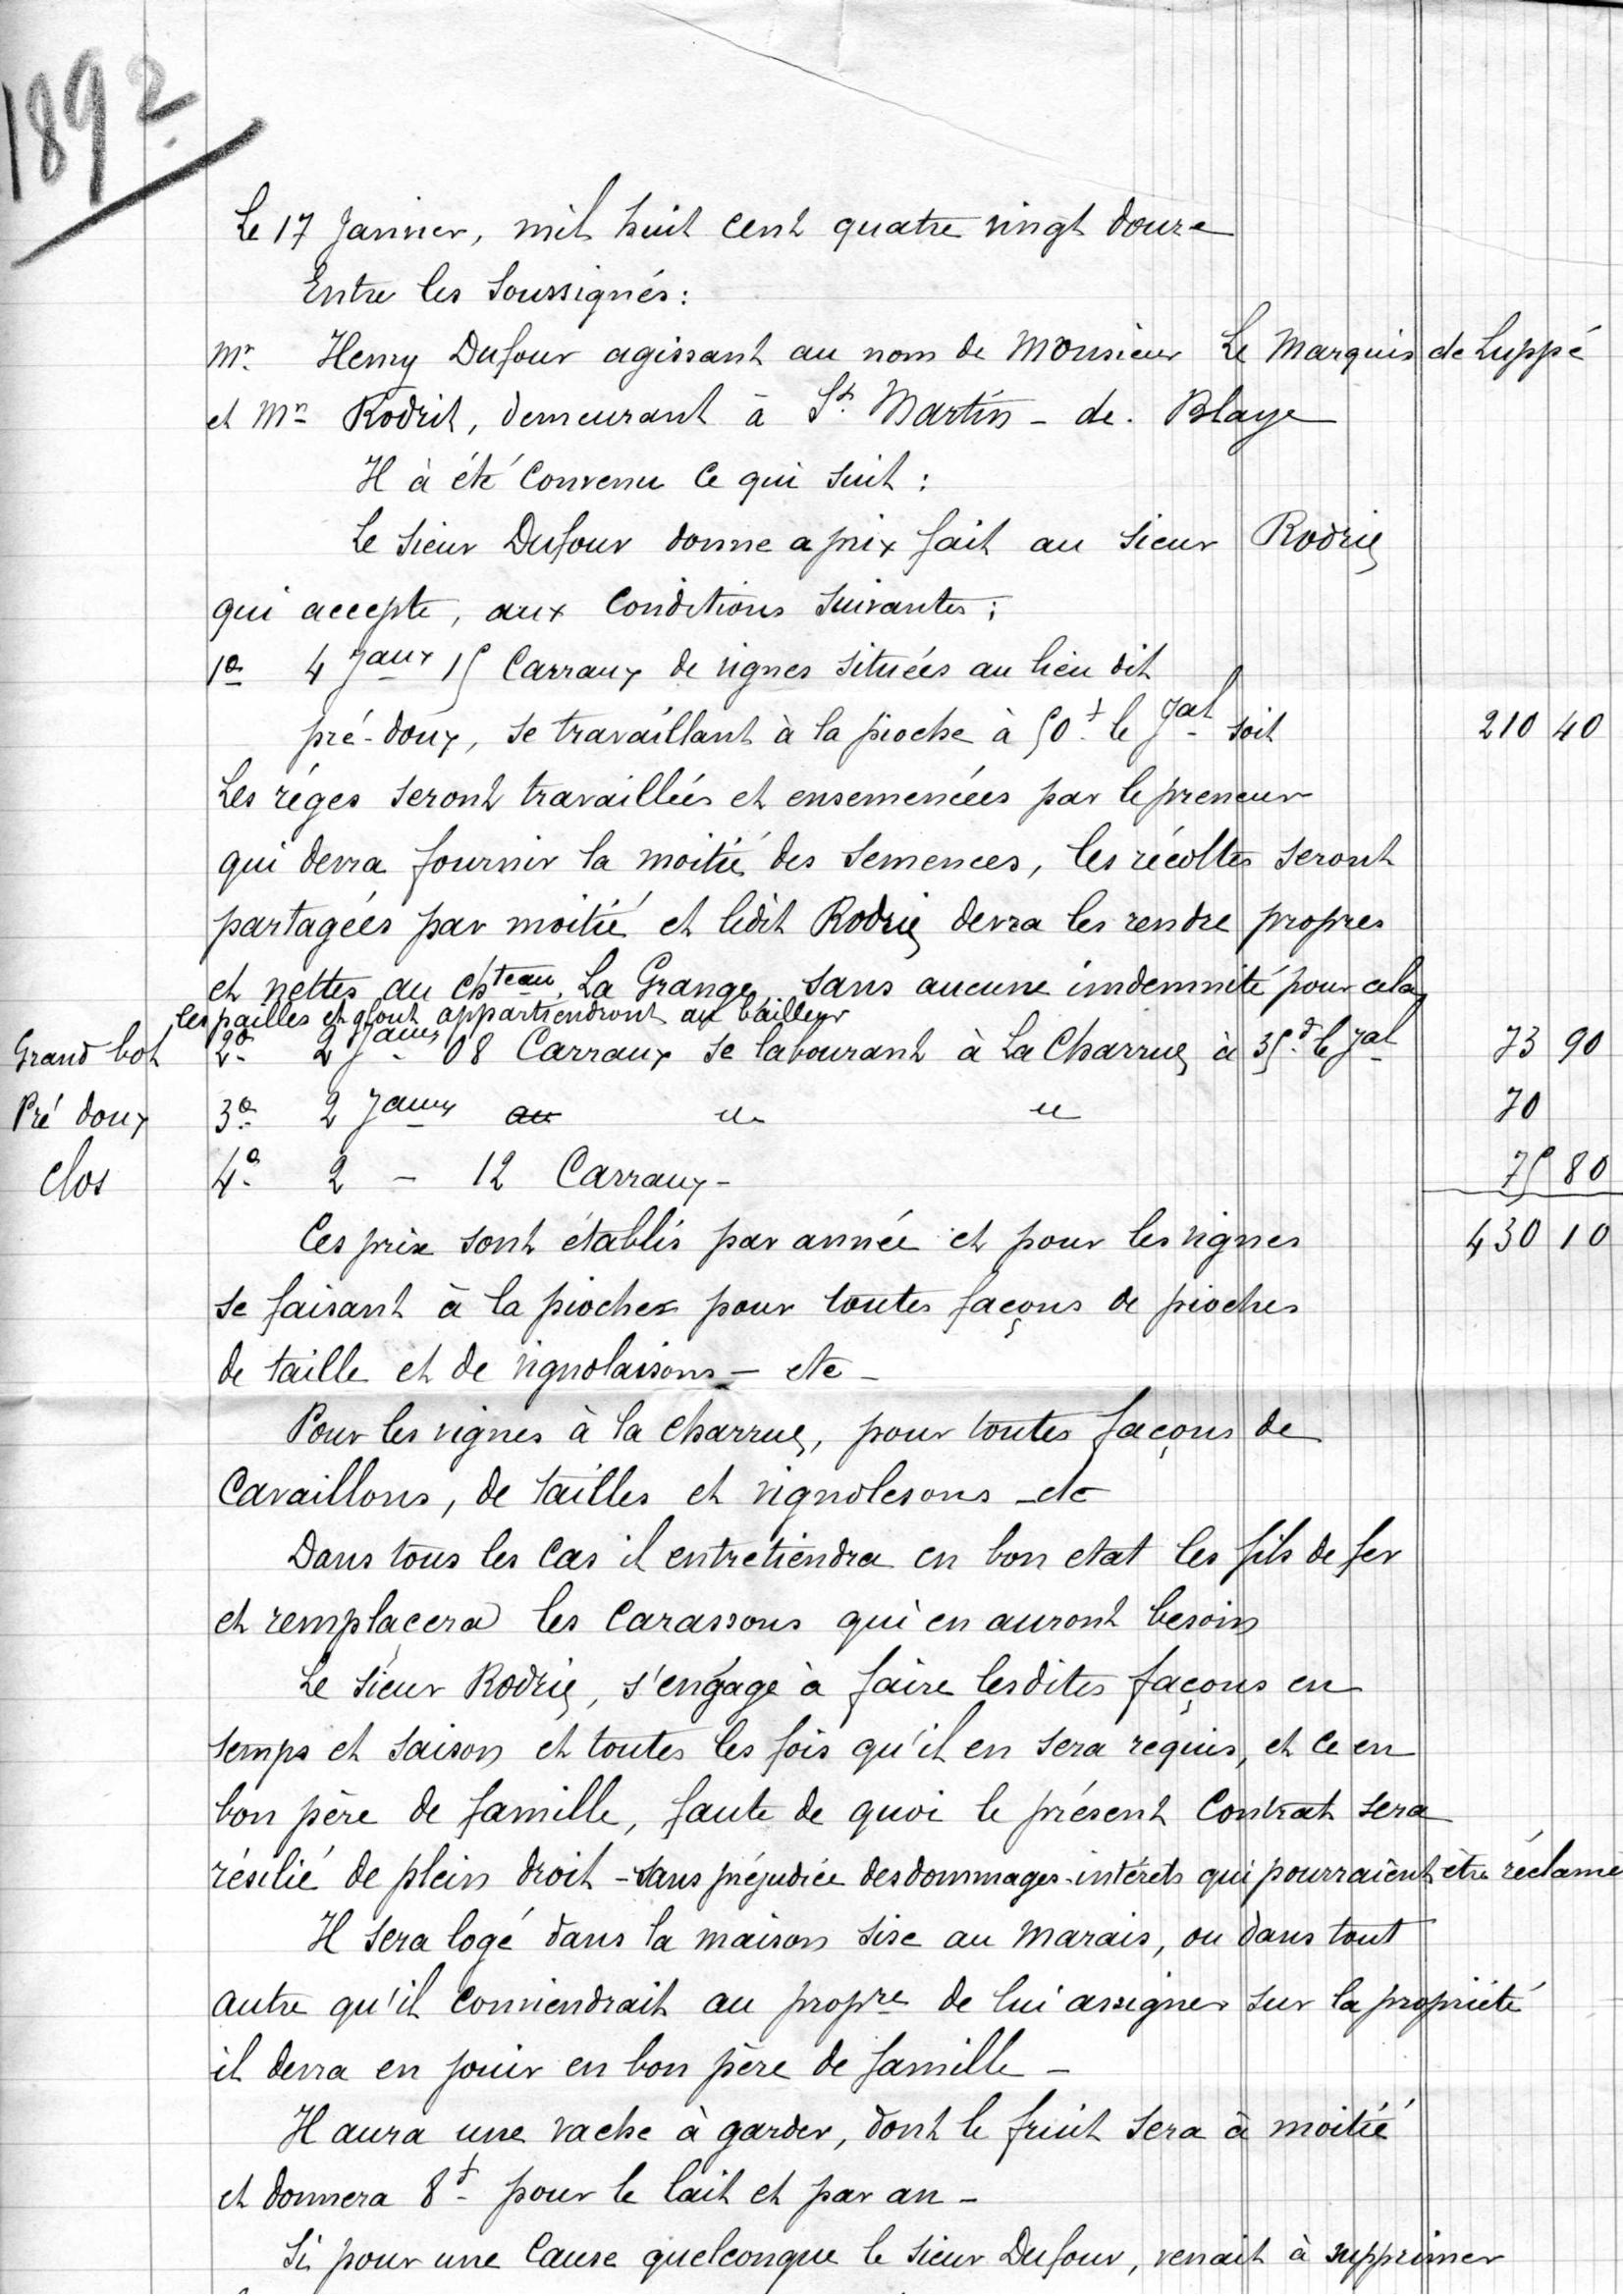 1892
Le 17 Janvier, mil huit cent quatre vingt douze
Entre les Soussignés :
Mr. Henry Dufour agissant au nom de Monsieur Le Marquis de Luppé
et Mr Rodrit, demeurant à St. Martin - de. Blaye
Il à été Convenu Ce qui suit :
Le Sieur Dufour donne a prix fait au Sieur Rodrie
qui accepte, aux Conditions Suivantes :
1º 4 Jaux 15 Carraux de vignes situées au lieu dit
pré-doux, se travaillant à la pioche à 50f. le Jal soit 210 40
Les réges seront travaillées et ensemencées par le preneur
qui devra fournir la moitié des semences, les récoltes seront
partagées par moitié et ledit Rodrie devra les rendre propres
et nettes au chteau. La Grange sans aucune imdemnité pour cela
les pailles et glout appartiendront au bailleur
Grand bot 2º 2 Jaux 08 Carraux se labourant à La Charrue à 35f. le Jal 73 90
Pré doux 3º 2 Jaux au " " 70
Clos 4º 2 - 12 Carraux - 75 80
Ces prix sont établis par année et pour les vignes 430 10
se faisant à la pioche pour toutes façons de pioches
de taille et de vignolaisons - etc -
Pour les vignes à la Charrue, pour toutes façons de
Cavaillons, de tailles et vignolesons - etc
Dans tous les Cas il entretiendra en bon etat les fils de fer
et remplacera les Carassons qui en auront besoin
Le Sieur Rodrie, s'engage à faire lesdites façons en
temps et saison et toutes les fois qu'il en sera requis, et ce en
bon père de famille, faute de quoi le présent Contrat sera
résilié de plein droit - sans préjudice des dommages-intérêts qui pourraient être réclame
Il sera logé dans la maison sise au Marais, ou dans tout
autre qu'il Conviendrait au propre de lui assigner sur la propriété
il devra en jouir en bon père de famille -
Il aura une vache à garder, dont le fruit sera à moitié
et donnera 8f - pour le lait et par an -
Si pour une Cause quelconque le Sieur Dufour, venait à supprimer